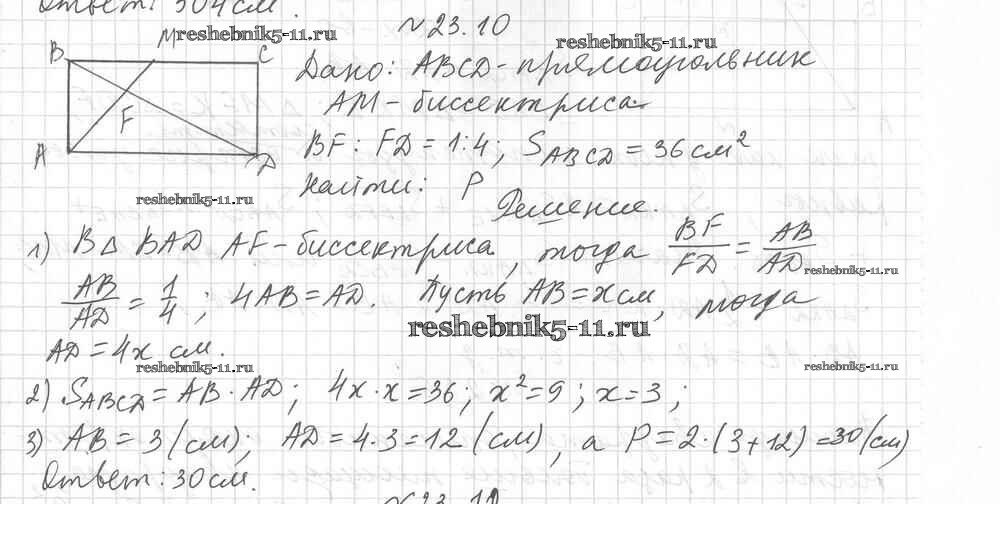 Ответ: 304 см.
reshebnik5-11.ru
№23.10
reshebnik5-11.ru
B M C
F
A D
Дано: ABCD - прямоугольник
AM - биссектриса
BF : FD = 1:4; S ABCD = 36 см²
Найти: P
reshebnik5-11.ru
Решение.
1) В Δ BAD AF - биссектриса, тогда BF/FD = AB/AD
reshebnik5-11.ru
AB/AD = 1/4; 4AB = AD. Пусть AB = x см, тогда
reshebnik5-11.ru
AD = 4x см.
reshebnik5-11.ru
reshebnik5-11.ru
2) S ABCD = AB · AD; 4x · x = 36; x² = 9; x = 3;
3) AB = 3 (см); AD = 4·3 = 12 (см), а P = 2·(3+12) = 30 (см)
Ответ: 30 см.